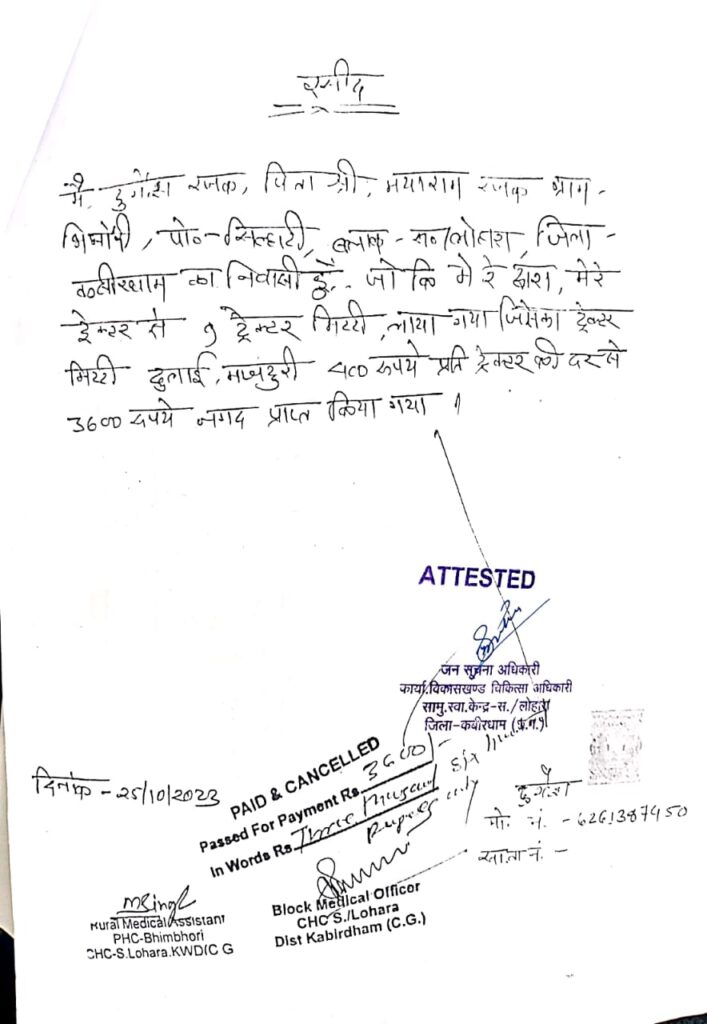 रसीद
मै, दुर्गेश रजक, पिता श्री, मयाराम रजक ग्राम -
भिंभोरी, पो०- सिल्हाटी, ब्लाक - स०/लोहारा, जिला -
कबीरधाम का निवासी हूँ.. जो कि मेरे द्वारा, मेरे
ट्रेक्टर से 9 ट्रेक्टर मिट्टी, लाया गया जिसका ट्रेक्टर
मिट्टी ढुलाई, मजदुरी 400 रूपये प्रति ट्रेक्टर की दर से
3600 रूपये नगद प्राप्त किया गया ।
ATTESTED
जन सूचना अधिकारी
कार्या.विकासखण्ड चिकित्सा अधिकारी
सामु.स्वा.केन्द्र-स./लोहारा
जिला-कबीरधाम (छ.ग.)
दिनांक - 25/10/2023
PAID & CANCELLED
Passed For Payment Rs. 3600/-
In Words Rs. Three thousand six hundred
Rupees only
दुर्गेश
मो. नं. - 6261387450
खाता नं. -
MSingh
Rural Medical Assistant
PHC-Bhimbhori
CHC-S.Lohara.KWD(C G
Block Medical Officor
CHC S./Lohara
Dist Kabirdham (C.G.)